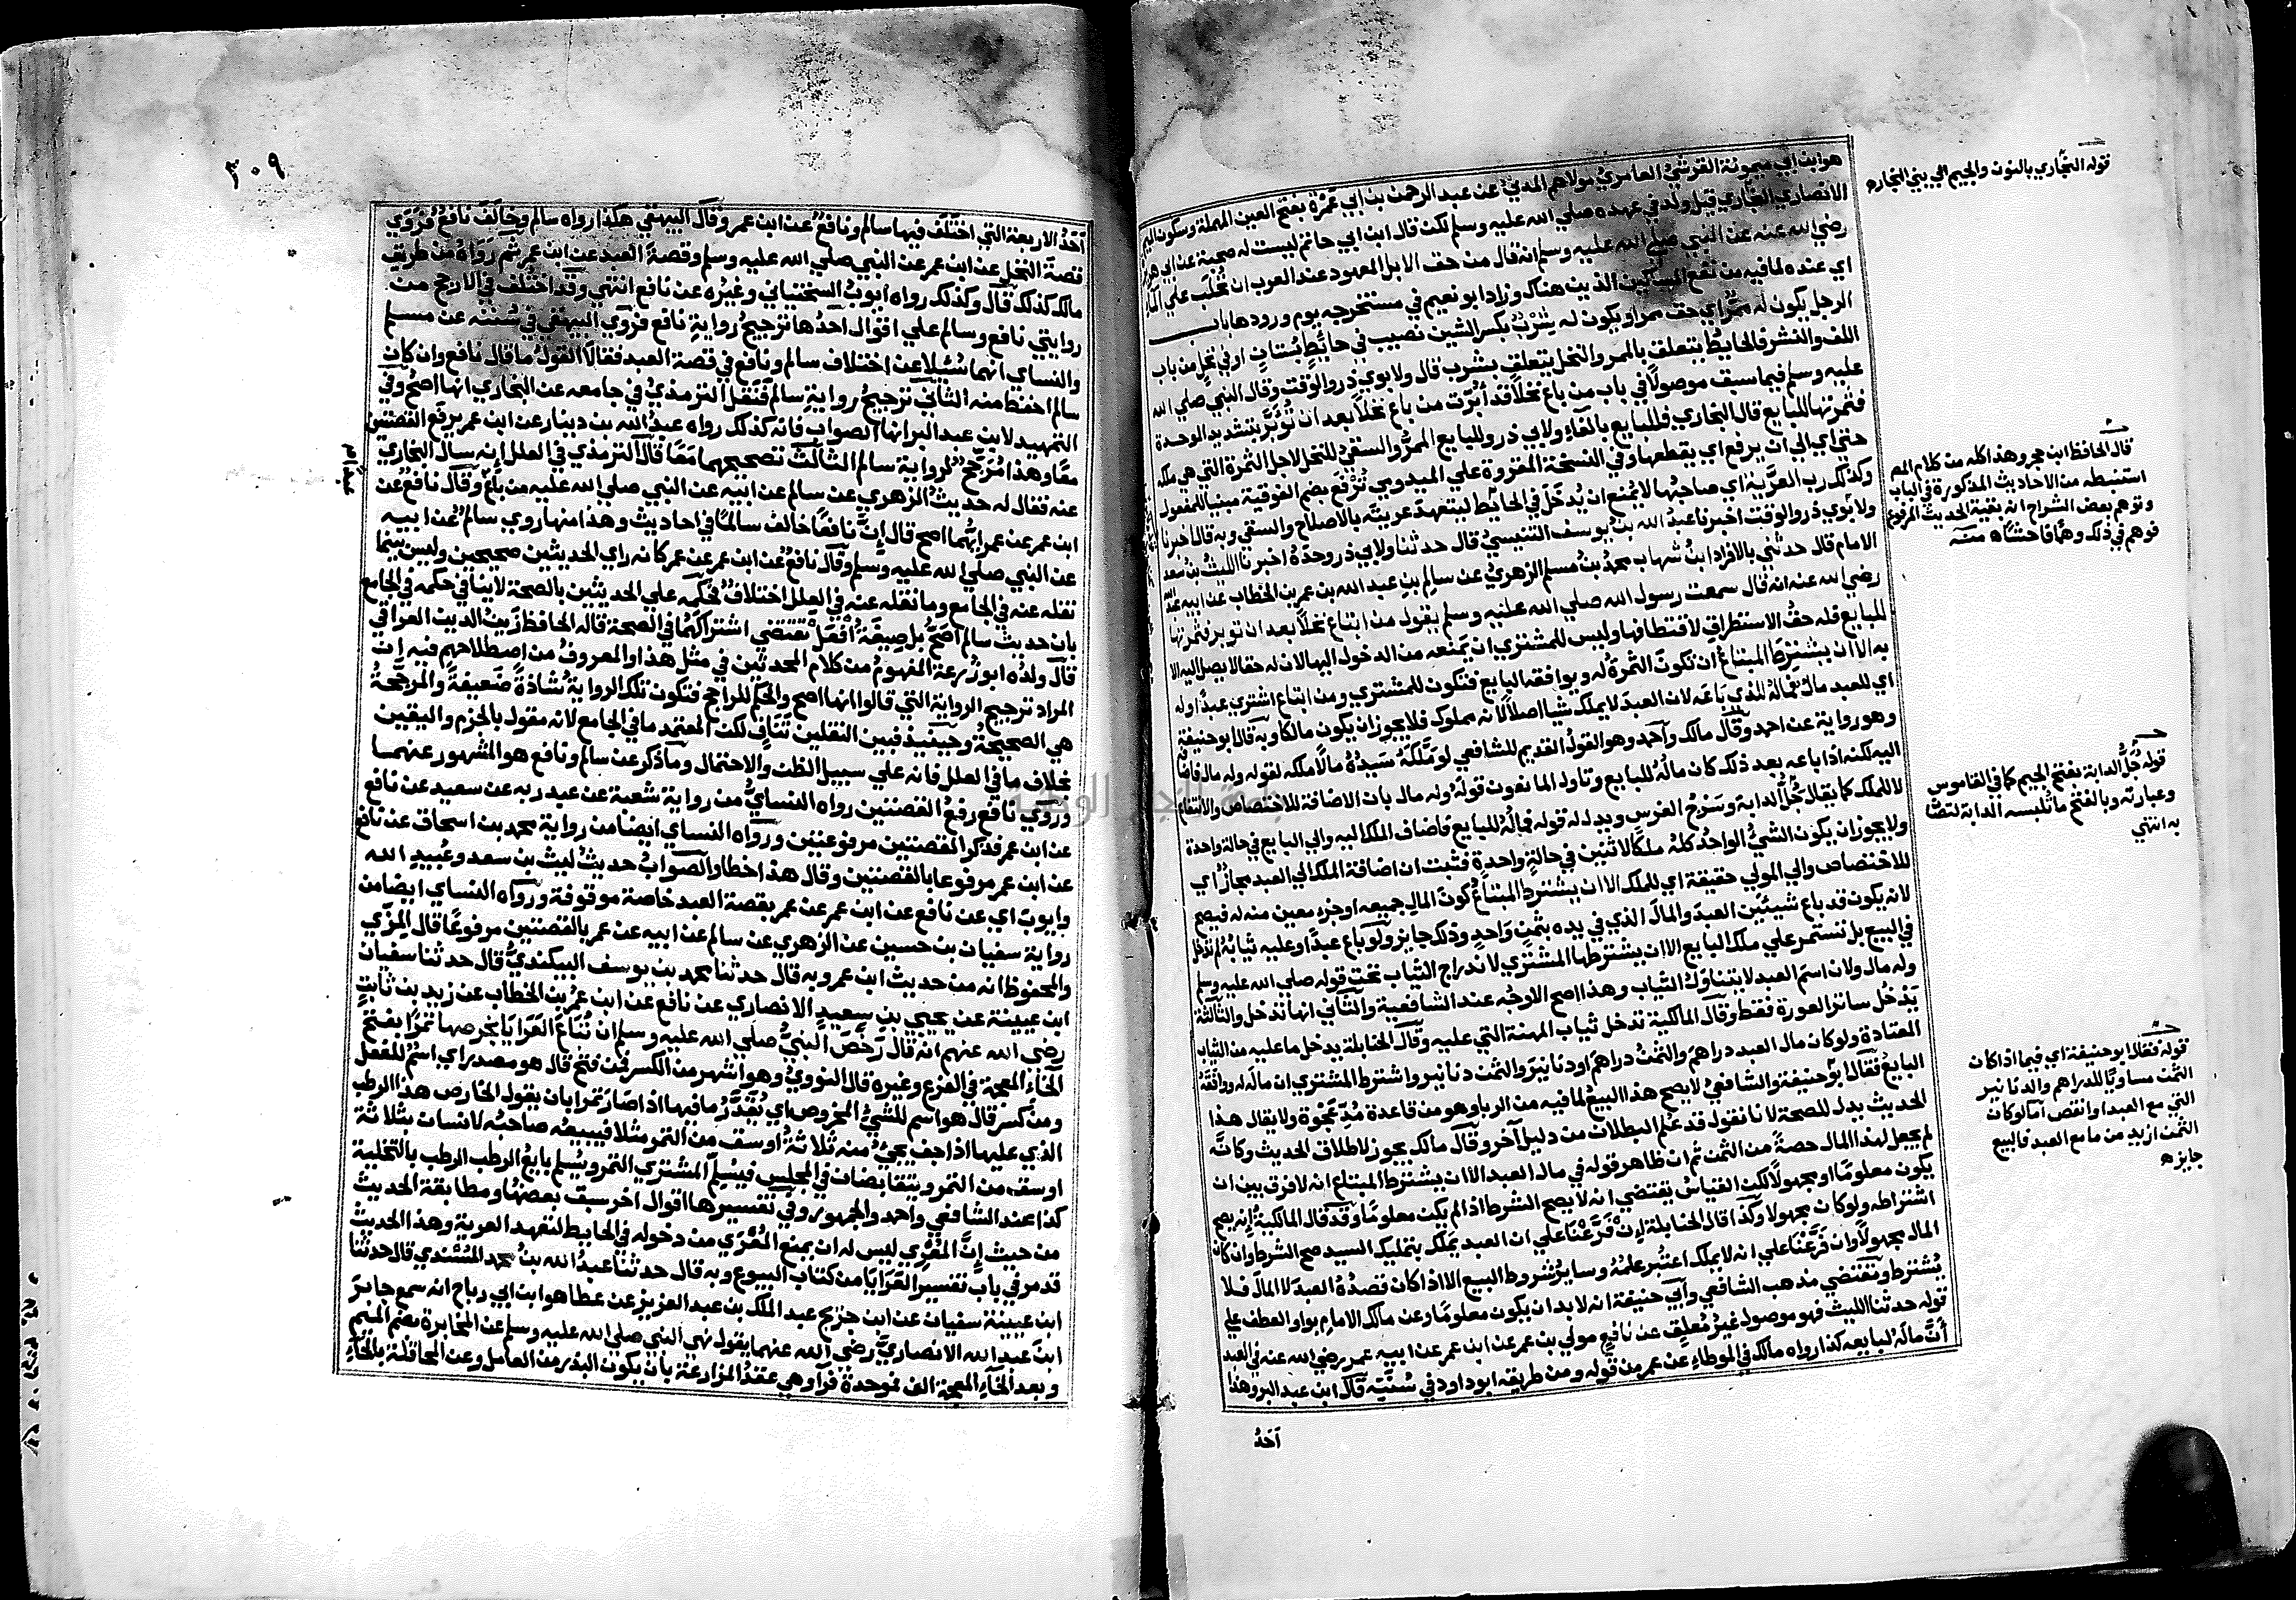 هو ابن ابي ميمونة القرشي العامري مولاهم المدني عن عبد الرحمن بن ابي عمرة بفتح العين المهملة وسكون الميم
الانصاري النجاري قيل ولد في عهده صلي الله عليه وسلم لكن قال ابن ابي حاتم ليست له صحبة عن ابي هريرة
رضي الله عنه عن النبي صلي الله عليه وسلم انه قال من حق الابل المعهود عند العرب ان تحلب علي الماء
اي عنده لما فيه من نفع المساكين الذين هناك وزاد ابو نعيم في مستخرجه يوم ورودها باب
الرجل يكون له ممر اي حق ممر او يكون له شرب بكسر الشين نصيب في حائط بستان او في نخل من باب
اللف والنشر فالحايط يتعلق بالممر والنخل يتعلق بشرب قال ولابوي ذر والوقت وقال النبي صلي الله
عليه وسلم فيما سبق موصولا في باب من باع نخلا قد ابرت من باع نخلا بعد ان تؤبر بتشديد الوحدة
فثمرتها للبايع قال البخاري فللبايع بالفاء ولابي ذر وللبايع الممر والسقي للنخل لاجل الثمرة التي هي ملكه
حتي اي الي ان يرفع اي يقطعها وفي النسخة المقروة علي الميدومي ترفع بضم الفوقية مبنيا للمفعول
وكذلك رب العرية اي صاحبها لا يمنع ان يدخل في الحائط ليتعهد عريته بالاصلاح والسقي وبه قال اخبرنا
ولابوي ذر والوقت اخبرنا عبد الله بن يوسف التنيسي قال حدثنا ولابي ذر وحده اخبرنا الليث بن سعد
الامام قال حدثني بالافراد ابن شهاب محمد بن مسلم الزهري عن سالم بن عبد الله بن عمر بن الخطاب عن ابيه عبد الله
رضي الله عنه انه قال سمعت رسول الله صلي الله عليه وسلم يقول من ابتاع نخلا بعد ان توبر فثمرتها
للبايع فله حق الاستطراق لاقتطافها وليس للمشتري ان يمنعه من الدخول اليها لان له حقا لا يصل اليه الا
به الا ان يشترط المبتاع ان تكون الثمرة له ويوافقه البايع فتكون للمشتري ومن ابتاع اشتري عبدا وله
اي للعبد مال فماله للذي باعه لان العبد لا يملك شيا اصلا لانه مملوك فلا يجوز ان يكون مالكا وبه قال ابو حنيفة
وهو رواية عن احمد وقال مالك واحمد وهو القول القديم للشافعي لو ملكه سيده مالا ملكه لقوله وله مال فاضافه
اليه لكنه اذا باعه بعد ذلك كان ماله للبايع وتاول المانعون قوله وله مال بان الاضافة للاختصاص والانتفاع
لا للملك كما يقال جل الدابة وسرج الفرس ويدل له قوله فماله للبايع فاضاف الملك اليه والي البايع في حالة واحدة
ولا يجوز ان يكون الشي الواحد كله ملكا لاثنين في حالة واحدة فثبت ان اضافة الملك الي العبد مجاز اي
للاختصاص والي المولي حقيقة اي للملك الا ان يشترط المبتاع كون المال جميعه او جزء معين منه له فيصح
لانه يكون قد باع شيئين العبد والمال الذي في يده بثمن واحد وذلك جايز ولو باع عبدا وعليه ثيابه لم تدخل
في البيع بل تستمر علي ملك البايع الا ان يشترطها المشتري لاندراج الثياب تحت قوله صلي الله عليه وسلم
وله مال ولان اسم العبد لا يتناول الثياب وهذا اصح الاوجه عند الشافعية والثاني انها تدخل والثالث
يدخل ساتر العورة فقط وقال المالكية تدخل ثياب المهنة التي عليه وقال الحنابلة يدخل ما عليه من الثياب
المعتادة ولو كان مال العبد دراهم والثمن دراهم او دنانير والثمن دنانير واشترط المشتري ان ماله له ووافقه
البايع فقال ابو حنيفة والشافعي لا يصح هذا البيع لما فيه من الربا وهو من قاعدة مد عجوة ولا يقال هذا
الحديث يدل للصحة لانا نقول قد علم البطلان من دليل آخر وقال مالك يجوز لاطلاق الحديث وكانه
لم يجعل لهذا المال حصة من الثمن ثم ان ظاهر قوله في مال العبد الا ان يشترط المبتاع انه لا فرق بين ان
يكون معلوما او مجهولا لكن القياس يقتضي انه لا يصح الشرط اذا لم يكن معلوما وقد قال المالكية انه يصح
اشتراطه ولو كان مجهولا وكذا قال الحنابلة ان فرعنا علي ان العبد يملك بتمليك السيد صح الشرط وان كان
المال مجهولا وان فرعنا علي انه لا يملك اعتبر علمه وساير شروط البيع الا اذا كان قصده العبد لا المال فلا
يشترط ويقتضي مذهب الشافعي وابي حنيفة انه لا بد ان يكون معلوما وعن مالك الامام بواو العطف علي
قوله حدثنا الليث فهو موصول غير معلق عن نافع مولي بن عمر عن ابن عمر عن ابيه عمر رضي الله عنه في العبد
ان ماله لبايعه كذا رواه مالك في الموطاء عن عمر من قوله ومن طريقه ابو داود في سننه قال ابن عبد البر وهذا
احد
قوله النجاري بالنون والجيم الي بني النجار ه
قال الحافظ ابن حجر وهذا كله من كلام المص
استنبطه من الاحاديث المذكورة في الباب
وتوهم بعض الشراح انه بقية الحديث المرفوع
فوهم في ذلك وهما فاحشا ه منه
قوله جل الدابة بفتح الجيم كما في القاموس
وعبارته وبالفتح ما تلبسه الدابة لتصان
به انتهي
قوله فقال ابو حنيفة اي فيما اذا كان
الثمن مساويا للدراهم والدنانير
التي مع العبد او انقص اما لو كان
الثمن ازيد من ما مع العبد فالبيع
جايز ه
٣٠٩
احد الاربعة التي اختلف فيها سالم ونافع عن ابن عمر وقال البيهقي هكذا رواه سالم وخالف نافع فروي
قصة النخل عن ابن عمر عن النبي صلي الله عليه وسلم وقصة العبد عن ابن عمر ثم رواه من طريق
مالك كذلك قال وكذلك رواه ايوب السختياني وغيره عن نافع انتهي وقد اختلف في الارجح من
روايتي نافع وسالم علي اقوال احدها ترجيح رواية نافع فروي البيهقي في سننه عن مسلم
والنساي انهما سئلا عن اختلاف سالم ونافع في قصة العبد فقالا القول ما قال نافع وان كان
سالم احفظ منه الثاني ترجيح رواية سالم فنقل الترمذي في جامعه عن البخاري انها اصح وفي
التمهيد لابن عبد البر انها الصواب فانه كذلك رواه عبد الله بن دينار عن ابن عمر برفع القصتين
معا وهذا مرجح لرواية سالم الثالث تصحيحهما معا قال الترمذي في العلل انه سال البخاري
عنه فقال له حديث الزهري عن سالم عن ابيه عن النبي صلي الله عليه من باع وقال نافع عن
ابن عمر عن عمر ايهما اصح قال ان نافعا خالف سالما في احاديث وهذا منها روي سالم عن ابيه
عن النبي صلي الله عليه وسلم وقال نافع عن ابن عمر عن عمر كانه راي الحديثين صحيحين وليس بينما
نقله عنه في الجامع وما نقله عنه في العلل اختلاف فحكمه علي الحديثين بالصحة لا ينافي حكمه في الجامع
بان حديث سالم اصح بل صيغة افعل تقتضي اشتراكهما في الصحة قاله الحافظ زين الدين العراقي
قال ولده ابو زرعة المفهوم من كلام المحدثين في مثل هذا والمعروف من اصطلاحهم فيه ان
المراد ترجيح الرواية التي قالوا انها اصح والحكم للراجح فتكون تلك الرواية شاذة ضعيفة والمرجحة
هي الصحيحة وحينيذ فبين النقلين تناف لكن المعتمد ما في الجامع لانه مقول بالجزم واليقين
بخلاف ما في العلل فانه علي سبيل الظن والاحتمال وما ذكر عن سالم ونافع هو المشهور عنهما
وروي نافع رفع القصتين رواه النساي من رواية شعبة عن عبد ربه عن سعيد عن نافع
عن ابن عمر فذكر القصتين مرفوعتين ورواه النساي ايضا من رواية محمد بن اسحاق عن نافع
عن ابن عمر مرفوعا بالقصتين وقال هذا خطا والصواب حديث ليث بن سعد وعبيد الله
وايوب اي عن نافع عن ابن عمر عن عمر بقصة العبد خاصة موقوفة ورواه النساي ايضا من
رواية سفيان بن حسين عن الزهري عن سالم عن ابيه عن عمر بالقصتين مرفوعا قال المزي
والمحفوظ انه من حديث ابن عمر وبه قال حدثنا محمد بن يوسف البيكندي قال حدثنا سفيان
ابن عيينة عن يحيي بن سعيد الانصاري عن نافع عن ابن عمر بن الخطاب عن زيد بن ثابت
رضي الله عنهم انه قال رخص النبي صلي الله عليه وسلم ان تباع العرايا بخرصها تمرا بفتح
الخاء المعجمة في الفرع وغيره قال النووي وهو اشهر من الكسر فمن فتح قال هو مصدر اي اسم للفعل
ومن كسر قال هو اسم للشي المخروص اي يقدر ما فيها اذا صار تمرا بان يقول الخارص هذا الرطب
الذي عليها اذا جف يجيء منه ثلاثة اوسق من التمر مثلا فيبيعه صاحبه لانسان بثلاثة
اوسق من التمر ويتقابضان في المجلس فيسلم المشتري التمر ويسلم بايع الرطب الرطب بالتخلية
كذا عند الشافعي واحمد والجمهور وفي تفسيرها اقوال اخر سبق بعضها ومطابقة الحديث
من حيث ان المعري ليس له ان يمنع المعري من دخوله في الحايط لتعهد العرية وهذا الحديث
قد مر في باب تفسير العرايا من كتاب البيوع وبه قال حدثنا عبد الله بن محمد المسندي قال حدثنا
ابن عيينة سفيان عن ابن جريج عبد الملك بن عبد العزيز عن عطا هو ابن ابي رباح انه سمع جابر
ابن عبد الله الانصاري رضي الله عنهما يقول نهي النبي صلي الله عليه وسلم عن المخابرة بضم الميم
وبعد الخاء المعجمة الف فموحدة فراء وهي عقد المزارعة بان يكون البذر من العامل وعن المحاقلة بالحاء